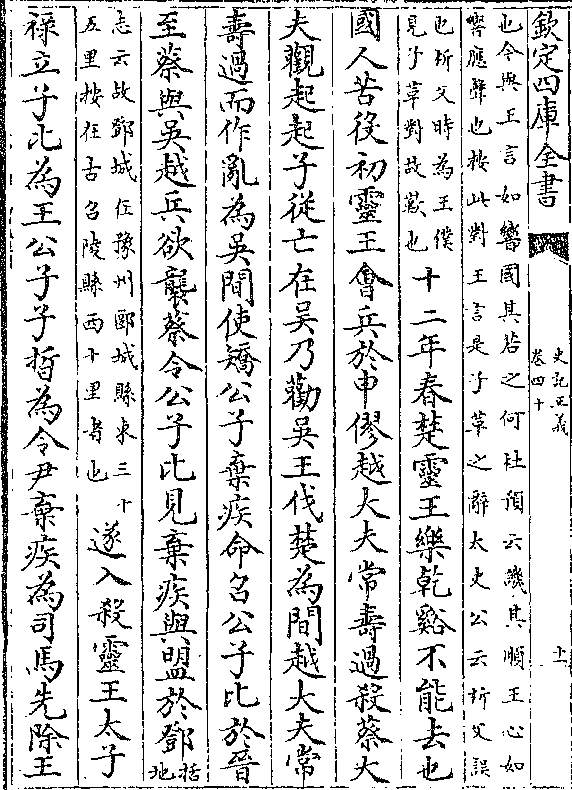 欽定四庫全書
史記正義
卷四十
十一
也今與王言如響國其若之何杜預云譏其順王心如
響應聲也按此對王言是子革之辭太史公云析父誤
也析父時為王僕
見子革對故歎也
十二年春楚靈王樂乾谿不能去也
國人苦役初靈王會兵於申僇越大夫常壽過殺蔡大
夫觀起起子從亡在吳乃勸吳王伐楚為間越大夫常
壽過而作亂為吳間使矯公子棄疾命召公子比於晉
至蔡與吳越兵欲襲蔡令公子比見棄疾與盟於鄧
括
地
志云故鄧城在豫州郾城縣東三十
五里按在古召陵縣西十里者也
遂入殺靈王太子
祿立子比為王公子子晳為令尹棄疾為司馬先除王